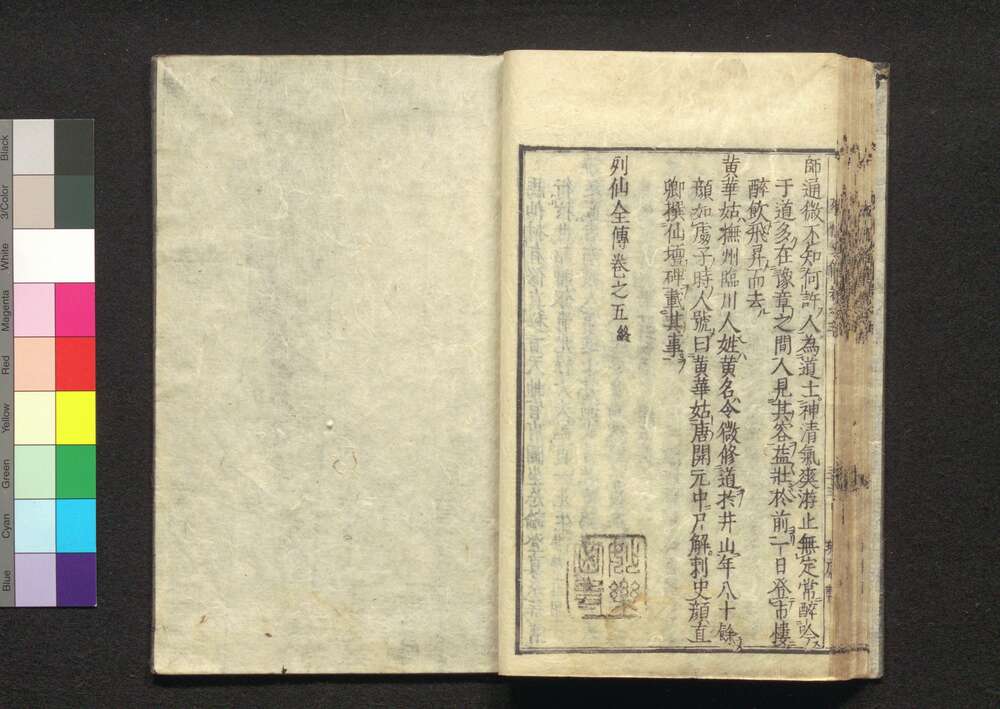 師通微不知何許人為道士神清氣爽游止無定常醉吟
于道多在豫章之間人見其容益壯於前一日登市樓
醉飲飛昇而去
黄華姑撫州臨川人姓黄名令微修道於井山年八十餘
顔如處子時人號曰黄華姑唐開元中尸解刺史顔直
卿撰仙壇碑載其事
列仙全傳卷之五終
Black
3/Color
White
Magenta
Red
Yellow
Green
Cyan
Blue